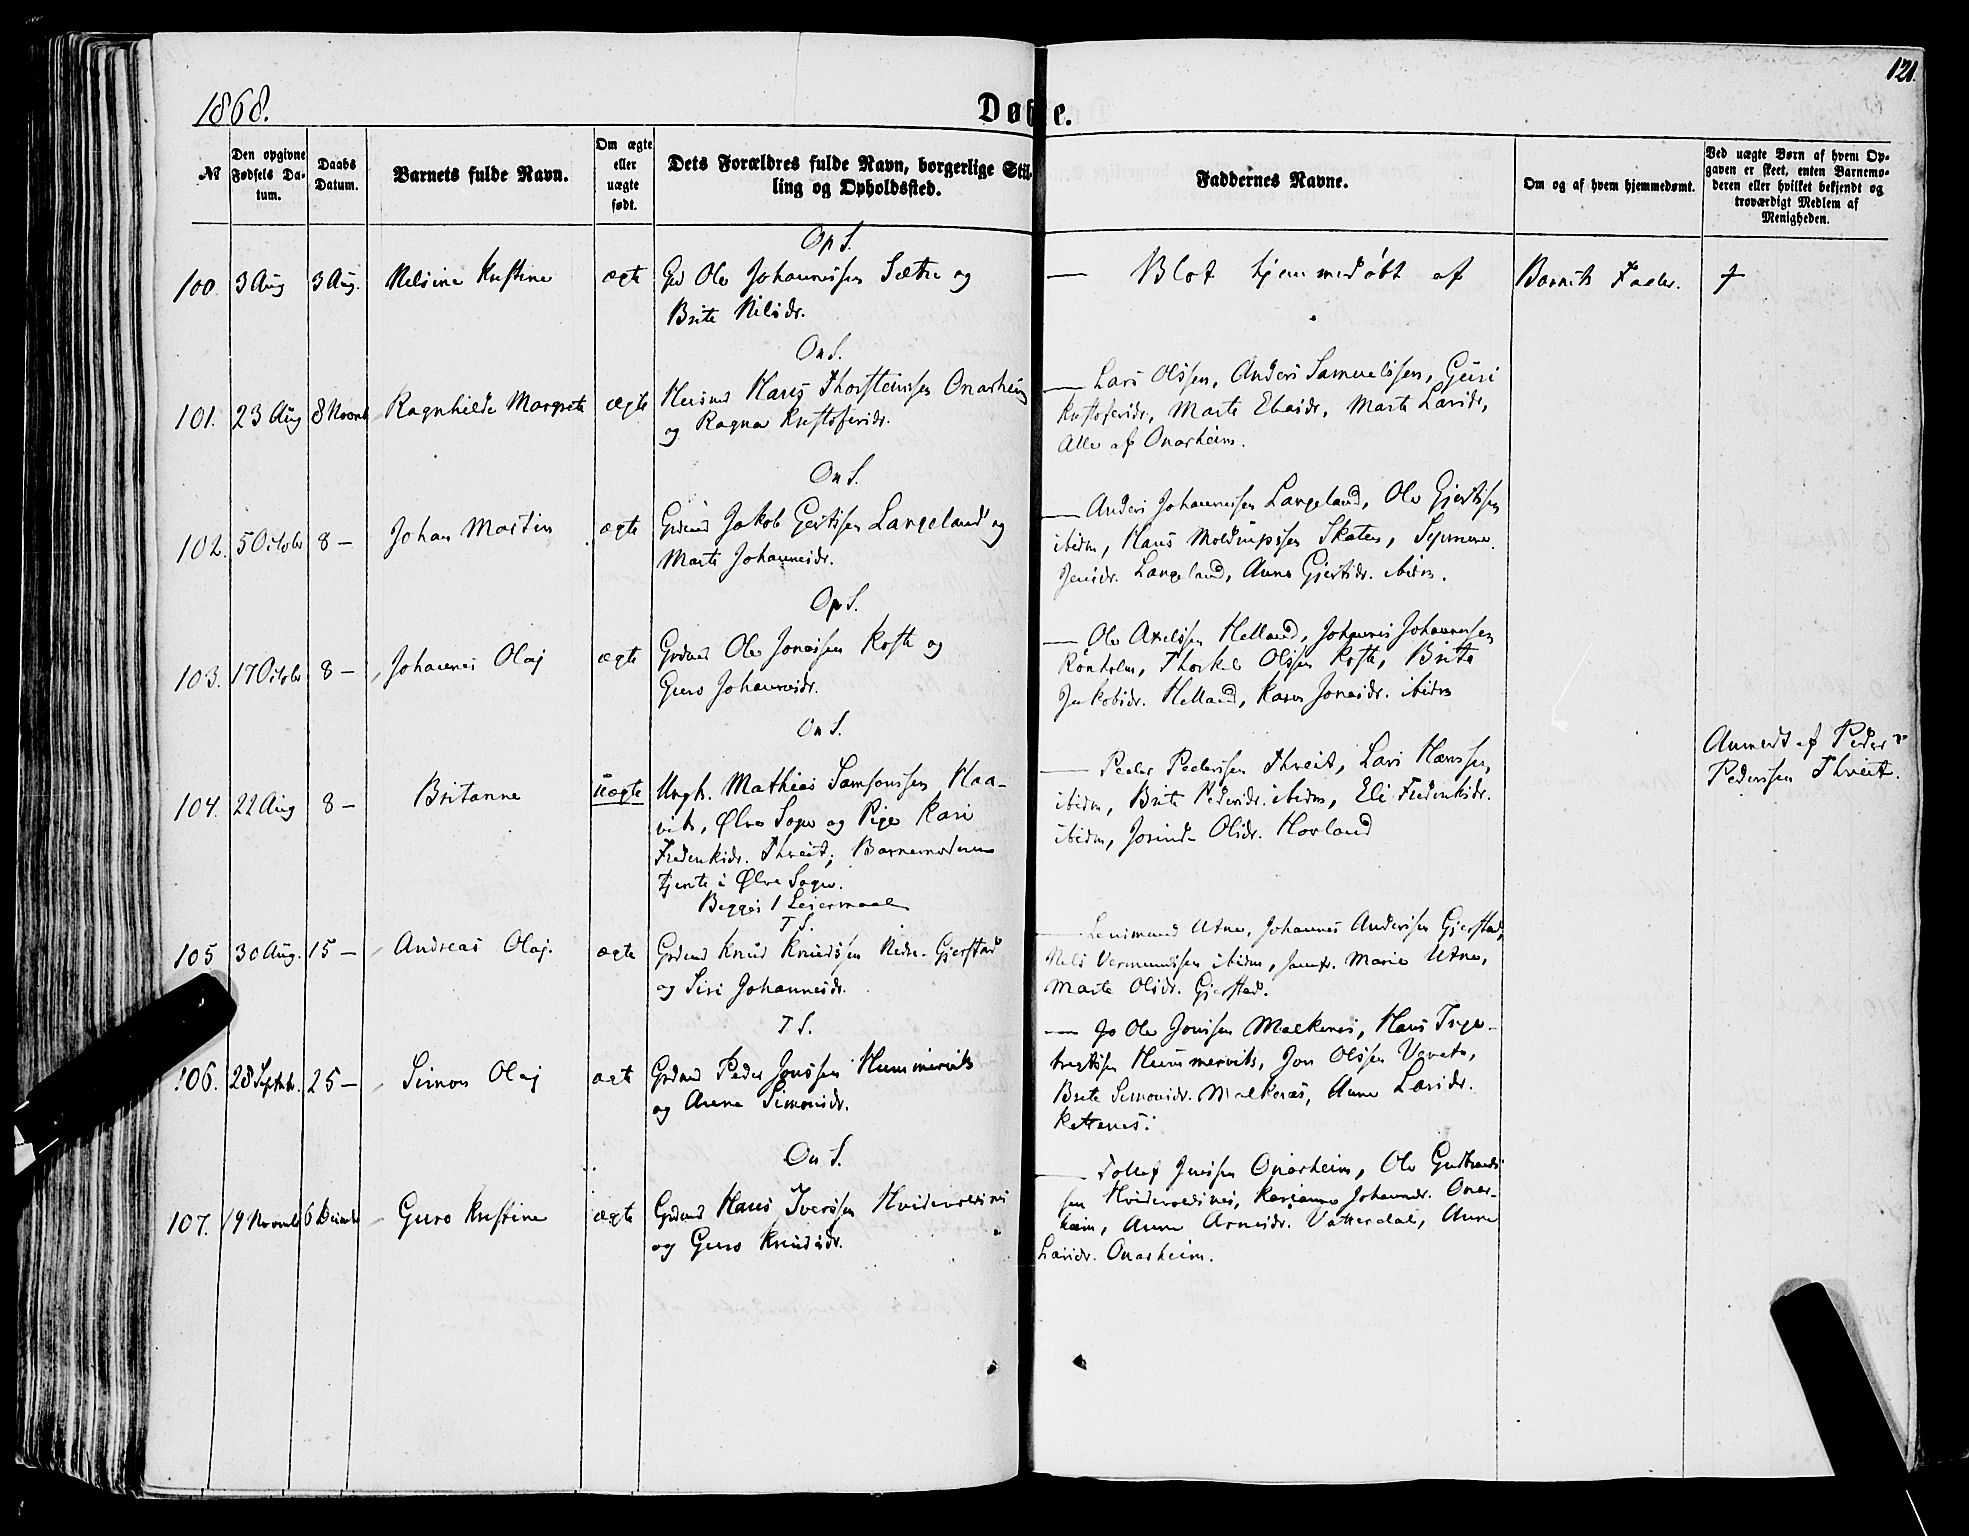 121.
1868.
Døbte.
№
Den opgivne Fødsels Datum.
Daabs Datum.
Barnets fulde Navn.
Om ægte eller uægte født.
Dets Forældres fulde Navn, borgerlige Stilling og Opholdssted.
Faddernes Navne.
Om og af hvem hjemmedømt.
Ved uægte Børn af hvem Opgaven er skeet, enten Barnemoderen eller hvilket bekjendt og troværdigt Medlem af Menigheden.
Op S.
100 3 Aug 3 Aug. Nelsine Kristine ægte Gd Ole Johannessen Sætre og
Brite Nilsdr.
— Blot hjemmedøbt af Barnets Fader. †
On S.
101. 23 Aug 8 Novmb Ragnhilde Margrete ægte Huusmd Hans Thorsteinssen Onarheim
og Ragna Kristofersdr.
— Lars Olssen, Anders Samuelssen, Guri
Kristofersdr, Marte Eliasdr, Marte Larsdr,
Alle af Onarheim.
On S.
102. 5 Octobr 8 — Johan Martin ægte Grdmd Jakob Gertssen Langeland og
Marte Johannesdr.
— Anders Johannessen Langeland, Ole Gjertssen
ibidm, Hans Moldrupssen Skaten,
Jensdr. Langeland, Anna Gjertsdr. ibidm.
Op S.
103. 17 Octobr 8 — Johannes Olaj ægte Grdmd Ole Jonassen Røste og
Guro Johannesdr.
— Ole Axelssen Helland, Johannes Johannessen
Rønholm, Thorkel Olssen Røste, Brite
Jakobsdr. Helland, Karen Jonasdr. ibidm
On S.
104. 22 Aug 8 — Britanne uægte Ungk. Mathias Samsonssen Haa-
vik, Ølve Sogn og Pige Kari
Frederiksdr. Thveit; Barnemoderen
tjente i Ølve Sogn.
Begges 1 Leiermaal
— Peder Pederssen Thveit, Lars Hanssen
ibidm, Brite Pedersdr. ibidm, Eli Frederiksdr.
ibidm, Jorind Olsdr. Hovland
Anmeldt af Peder
Pederssen Thveit.
T S.
105 30 Aug. 15 — Andreas Olaj. ægte Grdmd Knud Knudssen Nedre Gjerstad
og Siri Johannesdr.
— Lensmand Utne, Johannes Anderssen Gjerstad,
Nils Vermundssen ibidm, Jomfr. Marie Utne,
Marte Olsdr. Gjerstad.
T S.
106. 28 Septmb. 25 — Simon Olaj ægte Grdmd Peder Jonssen Hummervik
og Anna Simonsdr.
— Ole Jonssen Malkenes, Hans Inge-
bregtssen Hummervik, Jon Olssen
Brite Simonsdr. Malkenes, Anne Larsdr.
On S.
107. 19 Novmb 6 Decmb Guro Kristine ægte Grdmd Hans Iverssen
og Guro Knudsdr.
— Tollef Jenssen Onarheim, Ole Gudbrands-
sen Johannesdr. Onar-
heim, Anne Arnesdr. Vatterdal, Anne
Larsdr. Onarheim.